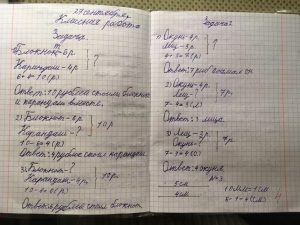 27 сентября.
Классная работа
Задача.
1) Блокнот-6р.
Карандаш-4р.
?
6+4=10(р)
Ответ: 10 рублей стоили блокнот
и карандаш вместе.
2) Блокнот-6р.
Карандаш-?
10р.
10-6=4(р)
Ответ: 4 рубля стоит карандаш
3) Блокнот-?
Карандаш-4р.
10р.
10-4=6(р)
Ответ: 6 рублей стоит блокнот
Задача 2
1) Окуни-4р.
Лещ-3р.
?
4+3=7(р)
Ответ: 7 рыб
2) Окуни-4р.
Лещ-?
7р.
7-4=3(р)
Ответ: 3 леща.
3) Лещ-3р.
Окуни-?
7р.
7-3=4(р)
Ответ: 4 окуня.
№3.
5см
4см
10мм=1см
5-1=4(см)